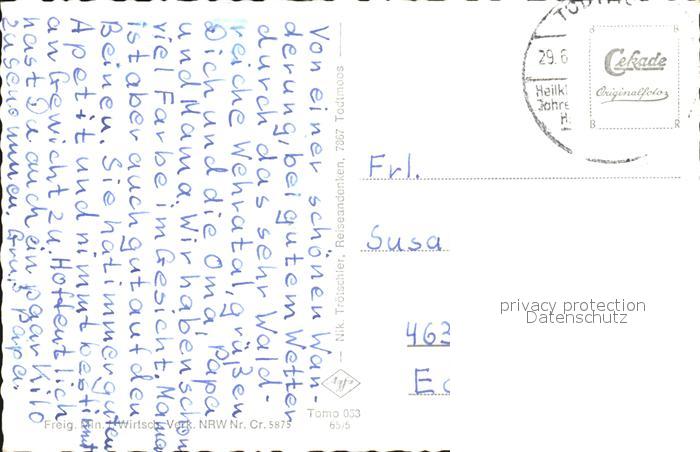 Von einer schönen Wan-
derung, bei gutem Wetter
durch das sehr Wald-
reiche Wehratal, grüßen
Dich und die Oma, Papa
und Mama. Wir haben schon
viel Farbe im Gesicht. Mama
ist aber auch gut auf den
Beinen. Sie hat immer guten
Apetit und nimmt bestimmt
an Gewicht zu. Hoffentlich
hast Du auch ein paar Kilo
zugenommen. Gruß Papa.
Nik. Trötschler, Reiseandenken, 7867 Todtmoos
Agfa
Tomo 033
65/5
Freig. Min. f. Wirtsch. Verk. NRW Nr. Cr. 5875
29.6
Heilkl
Jahre
Cekade
Originalfoto
B R
B R
Frl.
Susa
463
privacy protection
Datenschutz